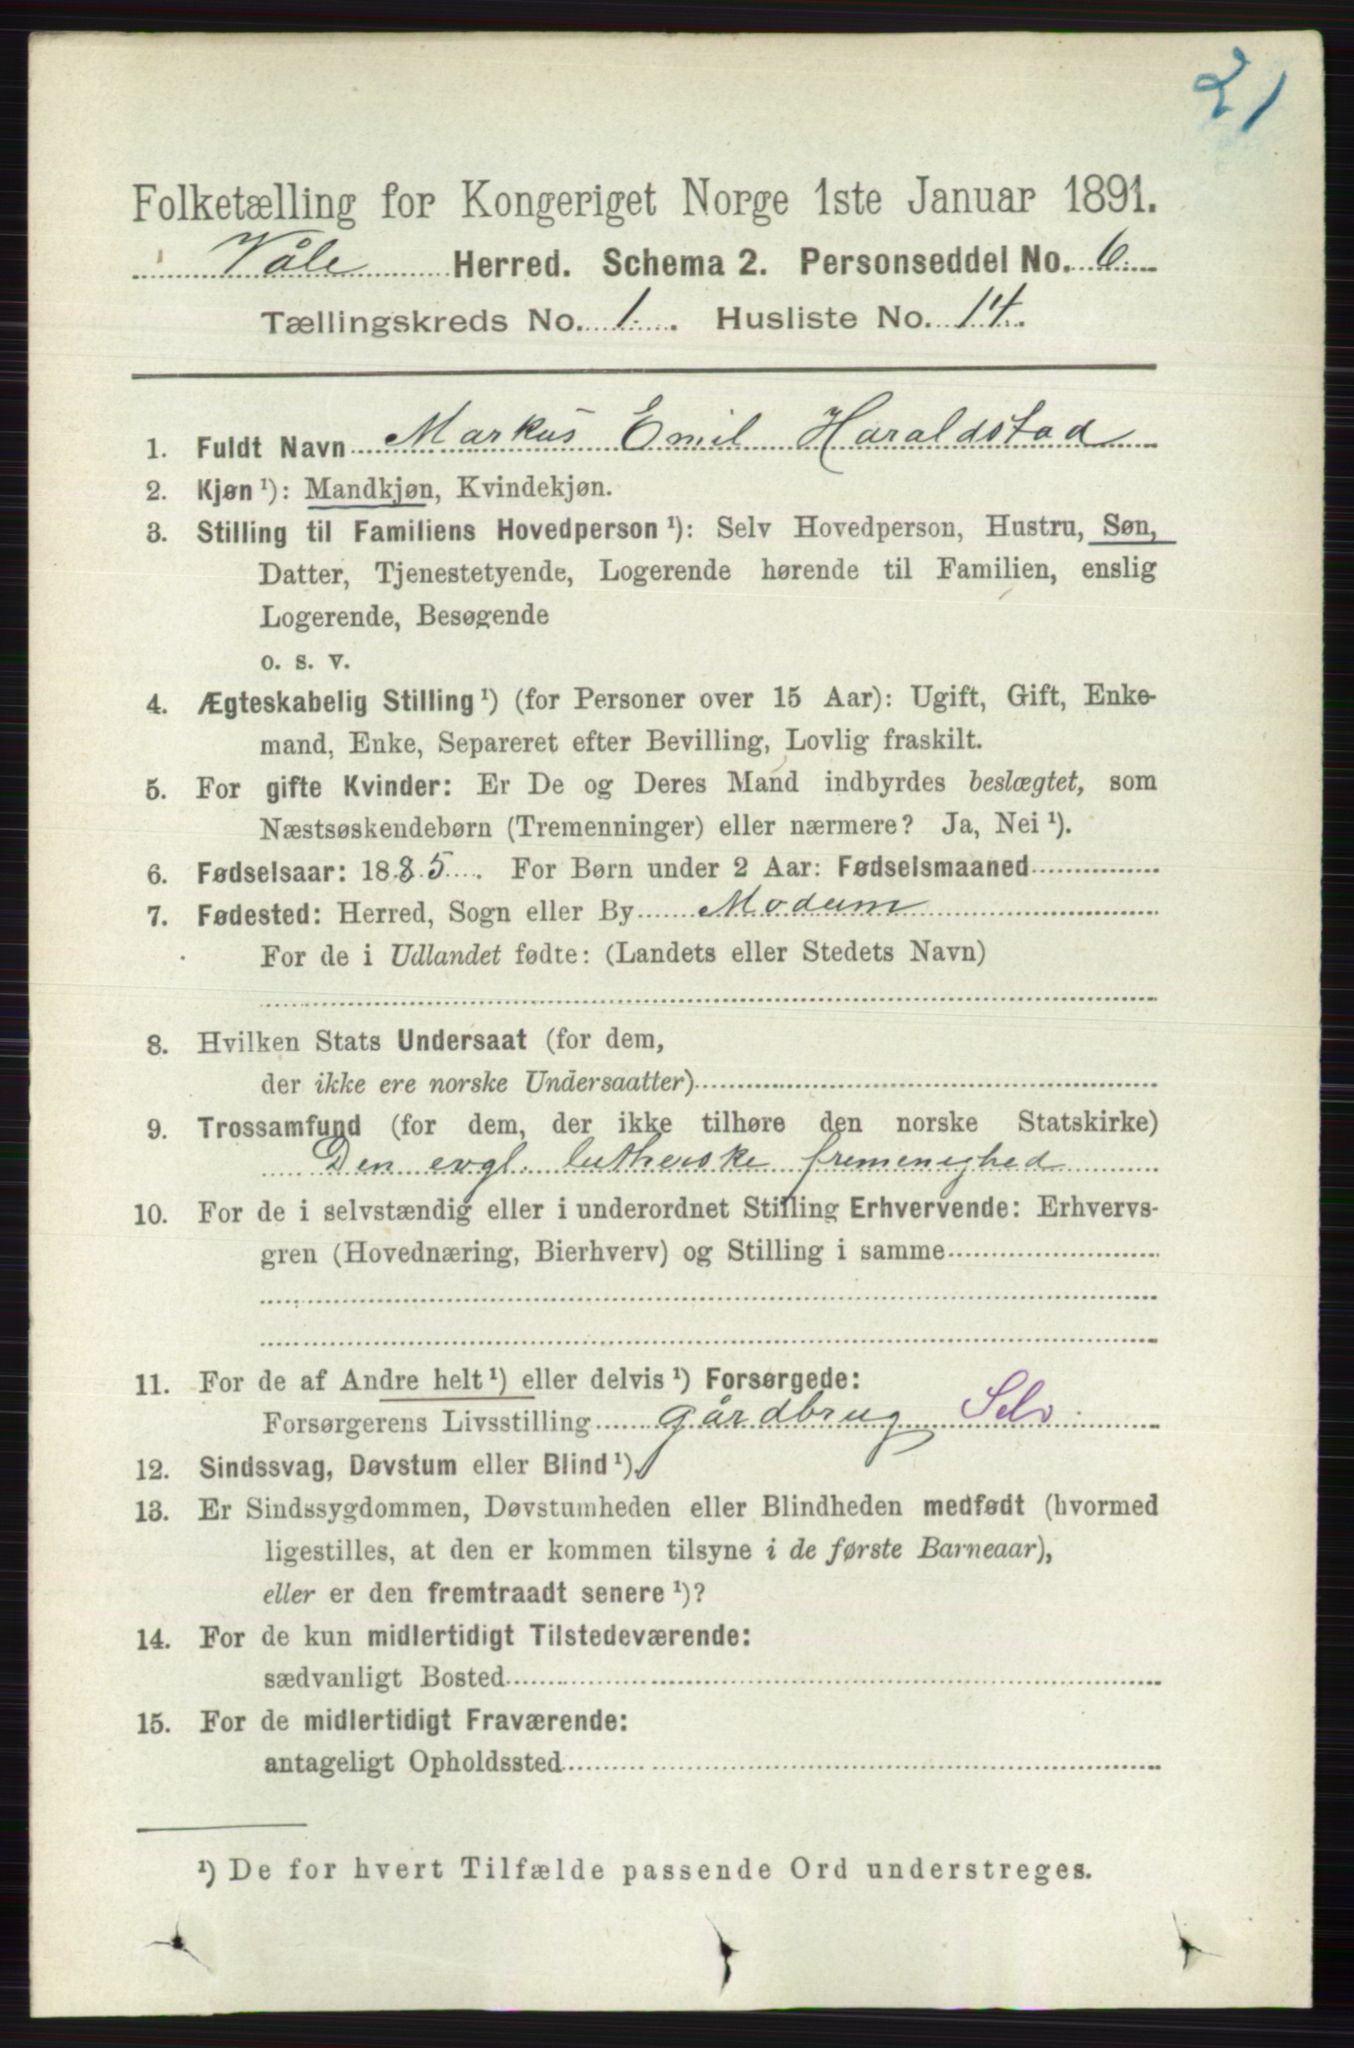 21
Folketælling for Kongeriget Norge 1ste Januar 1891.
Våle Herred. Schema 2. Personseddel No. 6
Tællingskreds No. 1. Husliste No. 14.
1. Fuldt Navn Markus Emil Haraldstad
2. Kjøn¹): Mandkjøn, Kvindekjøn.
3. Stilling til Familiens Hovedperson¹): Selv Hovedperson, Hustru, Søn,
Datter, Tjenestetyende, Logerende hørende til Familien, enslig
Logerende, Besøgende
o. s. v.
4. Ægteskabelig Stilling¹) (for Personer over 15 Aar): Ugift, Gift, Enke-
mand, Enke, Separeret efter Bevilling, Lovlig fraskilt.
5. For gifte Kvinder: Er De og Deres Mand indbyrdes beslægtet, som
Næstsøskendebørn (Tremenninger) eller nærmere? Ja, Nei¹).
6. Fødselsaar: 1885. For Børn under 2 Aar: Fødselsmaaned
7. Fødested: Herred, Sogn eller By Modum
For de i Udlandet fødte: (Landets eller Stedets Navn)
8. Hvilken Stats Undersaat (for dem,
der ikke ere norske Undersaatter)
9. Trossamfund (for dem, der ikke tilhøre den norske Statskirke)
Den evgl. lutherske frimenighed
10. For de i selvstændig eller i underordnet Stilling Erhvervende: Erhvervs-
gren (Hovednæring, Bierhverv) og Stilling i samme
11. For de af Andre helt¹) eller delvis¹) Forsørgede:
Forsørgerens Livsstilling gårdbrug Selv
12. Sindssvag, Døvstum eller Blind¹).
13. Er Sindssygdommen, Døvstumheden eller Blindheden medfødt (hvormed
ligestilles, at den er kommen tilsyne i de første Barneaar),
eller er den fremtraadt senere¹)?
14. For de kun midlertidigt Tilstedeværende:
sædvanligt Bosted
15. For de midlertidigt Fraværende:
antageligt Opholdssted
¹) De for hvert Tilfælde passende Ord understreges.